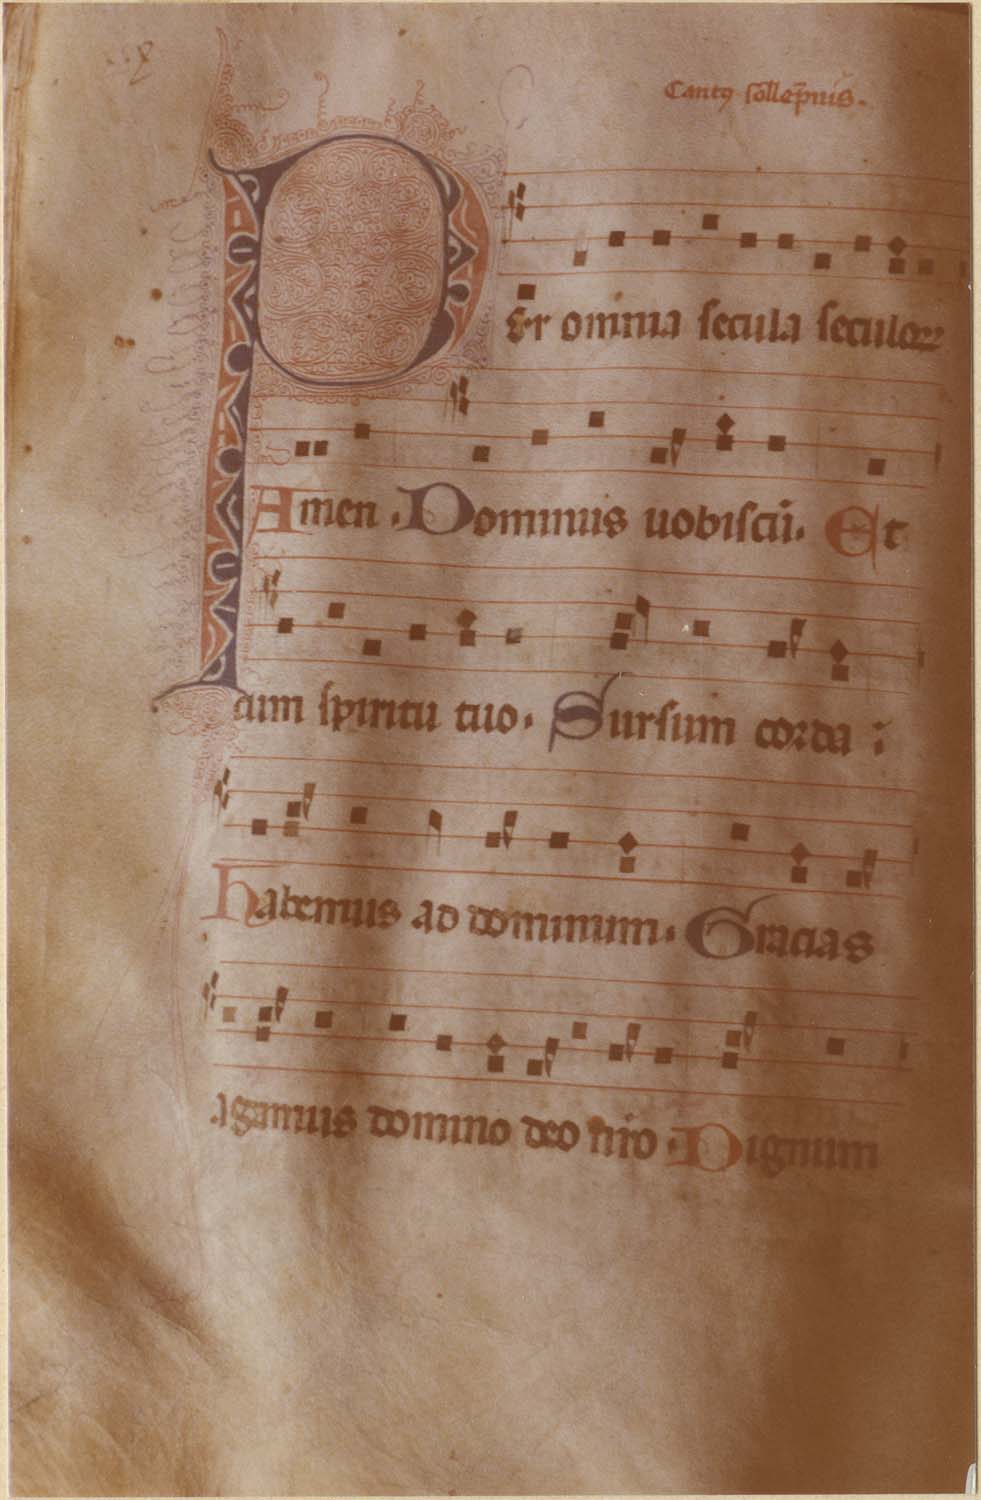 Cantꝯ sollēpnis.
Per omnia secula seculoꝝ
Amen. Dominus uobiscū. Et
cum spiritu tuo. Sursum corda
habemus ad dominum. Gracias
agamus domino deo nr̄o. Dignum